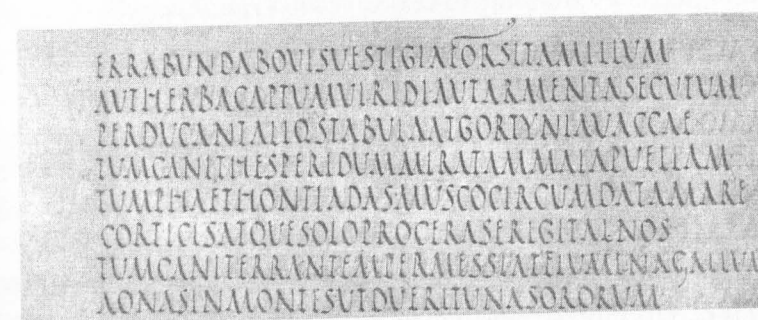 ERRABUNDABOVISVESTIGIAFORSITAMILLVM
AVTHERBACAPTUMVIRIDIAUTARMENTASECVTVM
PERDUCANTALIQSTABULAATGORTYNIAVACCAE
TUMCANITHESPERIDUMMIRATAMMALAPUELLAM
TUMPHAETHONTIADAS·MUSCOCIRCUMDATAMARE
CORTICISATQUESOLOPROCERASERIGITALNOS
TUMCANITERRANTEMPERMESSIATFLUMINAGALLVM
AONASINMONTESUTDUXERITUNASORORUM